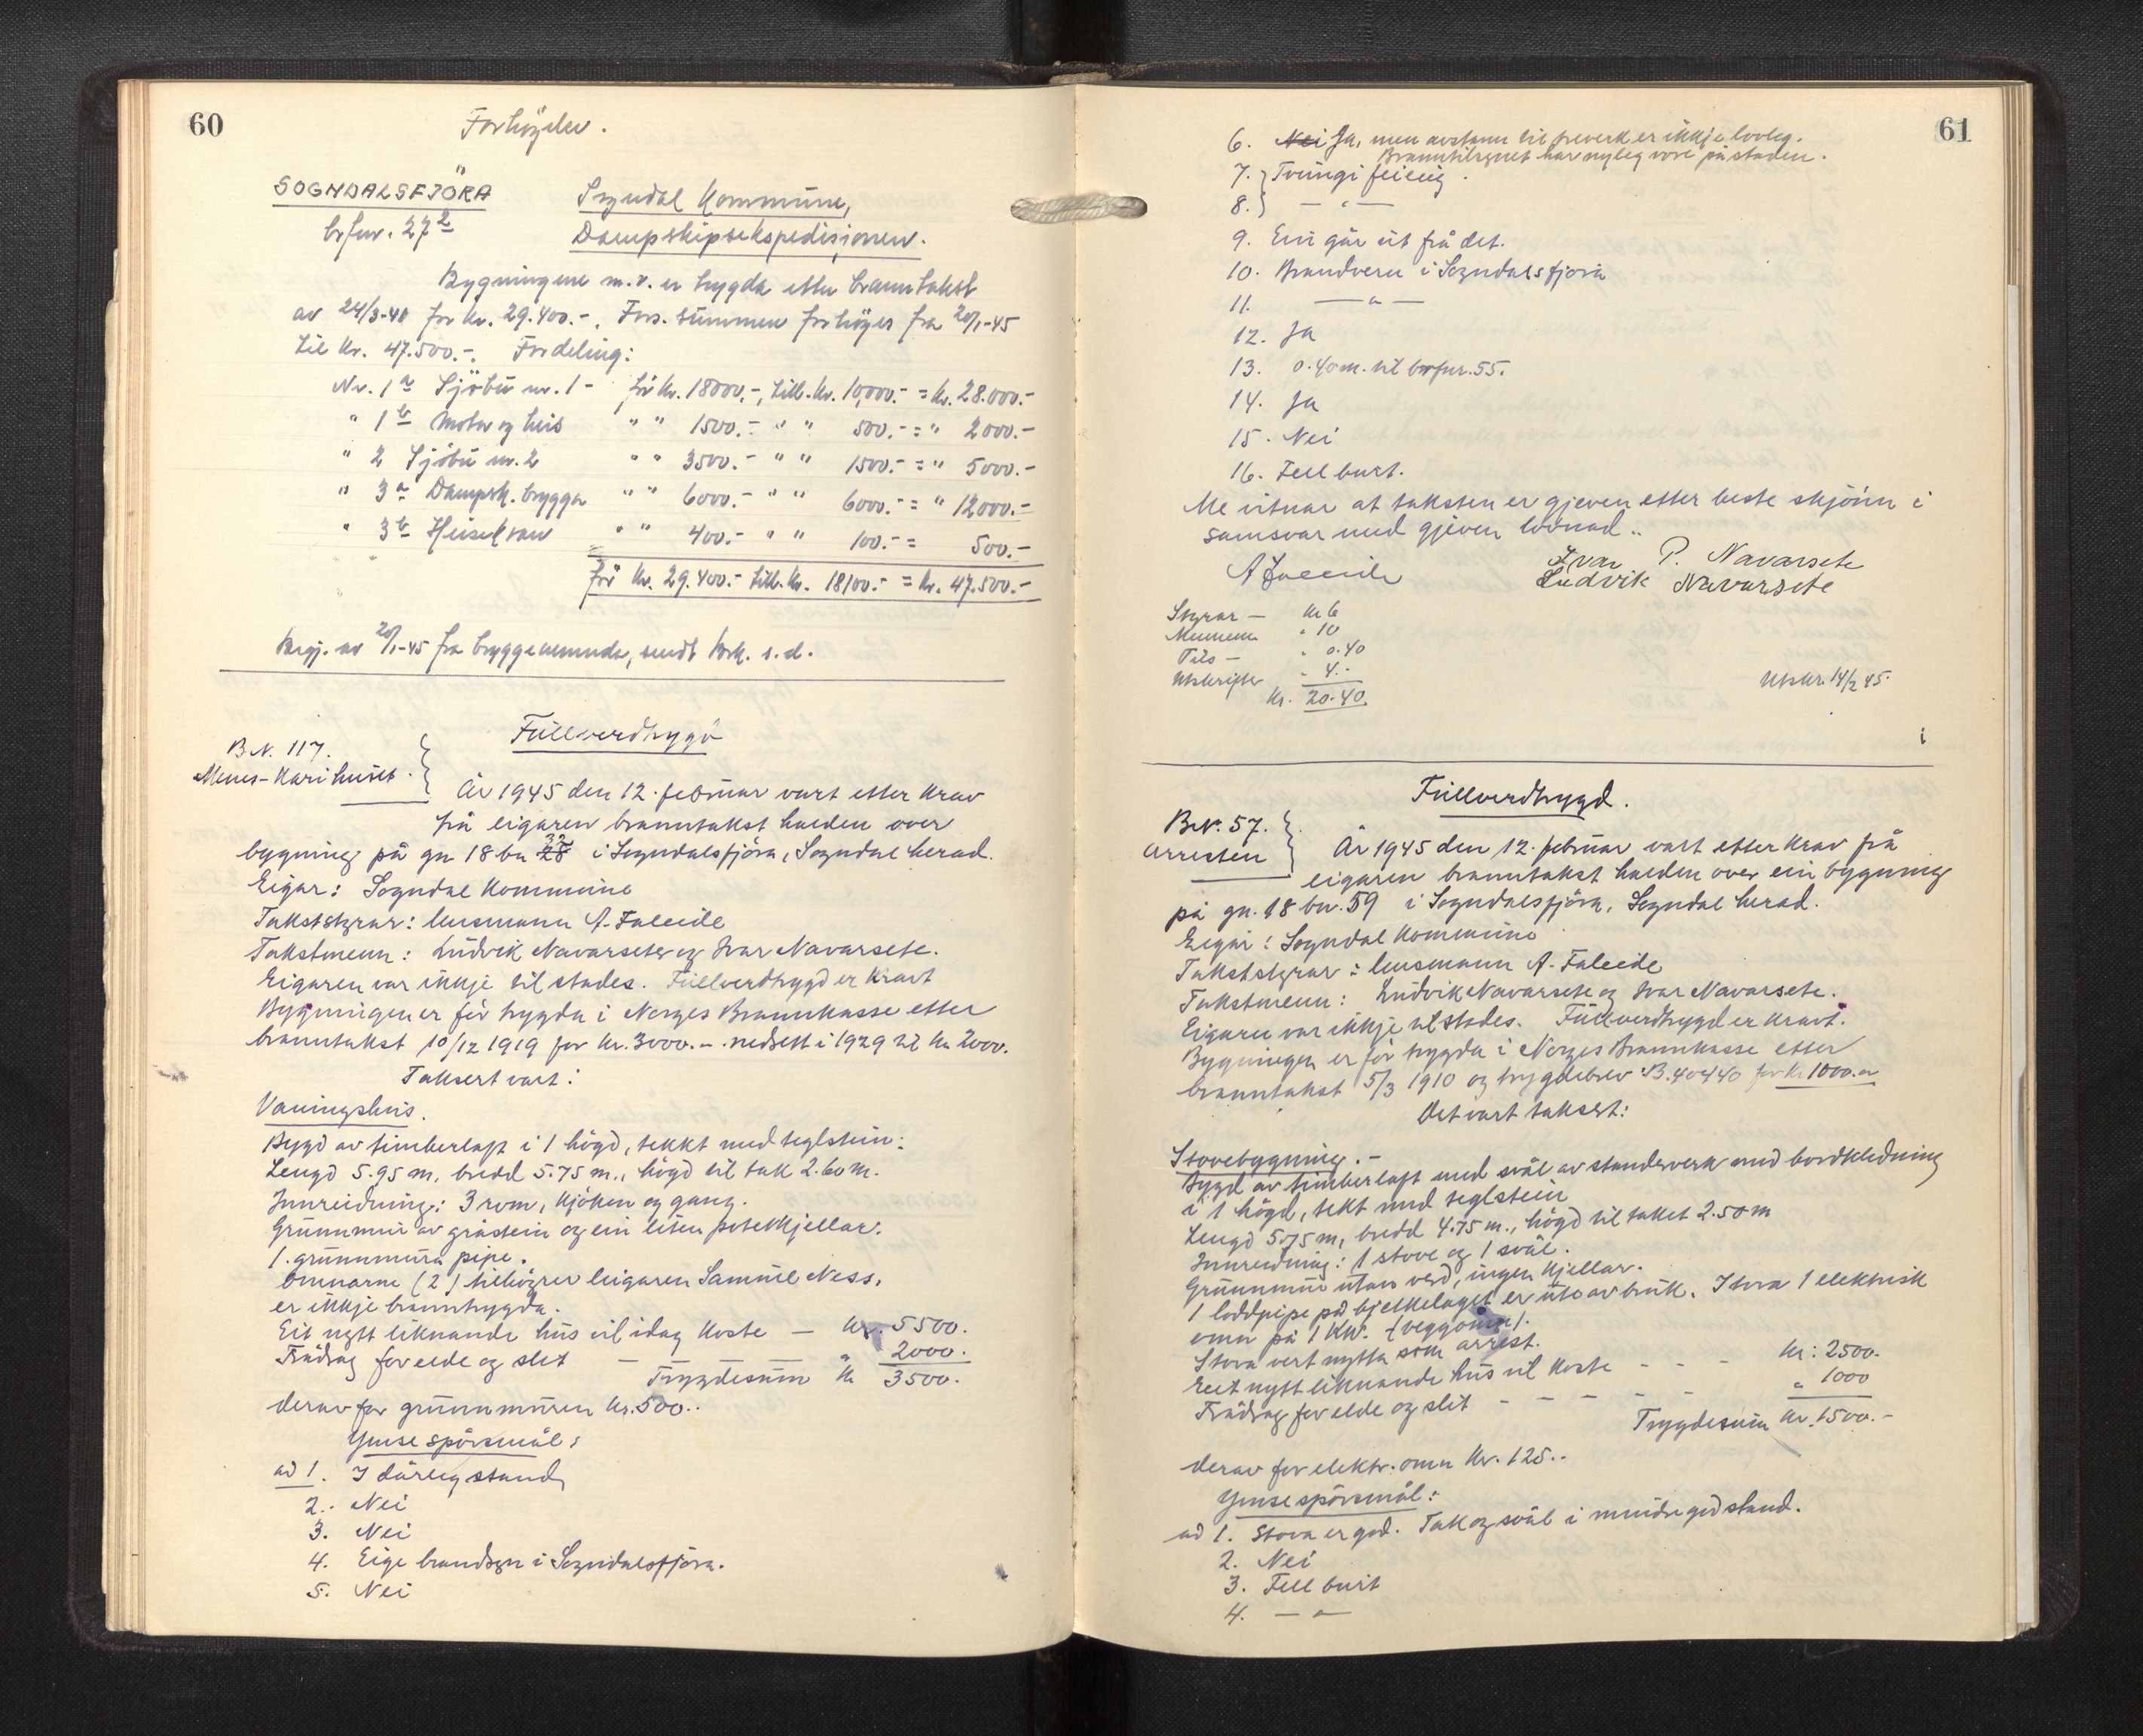 60
Forhögder.
SOGNDALSFJÖRA
brfnr. 27²
Sogndal Kommune,
Dampskipsekspedisjonen.
Bygningene m.v. er trygda etter branntakst
av 24/3-41 for kr. 29.400.-. Fors. summen forhöges fra 20/1-45
til kr. 47.500.-. Fordeling:
Nr. 1a Sjöbu nr. 1 - för kr. 18000,-, till. kr. 10,000.- = kr. 28.000.-
" 1b Motor og heis " " 1500.- " " 500.- = " 2000.-
" 2 Sjöbu nr. 2 " " 3500.- " " 1500.- = " 5000.-
" 3a Dampsk. brygga " " 6000.- " " 6000.- = " 12000.-
" 3b Heisekran " " 400.- " " 100.- = 500.-
för kr. 29.400.- till. kr. 18100.- = kr. 47.500.-
Begj. av 20/1-45 fra bryggenemnda, sendt s.d.
Fullverdtrygd
B.N. 117.
-Karihuset.
År 1945 den 12. februar vart etter krav
frå eigaren branntakst halden over
bygning på gn 18 bn 28 32 i Sogndalsfjöra, Sogndal herad.
Eigar: Sogndal Kommune
Takststyrar: lensmann A. Faleide
Takstmenn: Ludvik Navarsete og Ivar Navarsete.
Eigaren var ikkje til stades. Fullverdtrygd er kravt
Bygningen er för trygda i Norges Brannkasse etter
branntakst 10/12 1919 for kr. 3000.-. nedsett i 1929 til kr 2000.
Taksert vart:
Vaningshus.
Bygd av timberlaft i 1 högd, tekkt med teglstein:
Lengd 5.95 m, bredd 5.75 m., högd til tak 2.60 m.
Innreidning: 3 rom, kjöken og gang.
Grunnmur av gråstein og ein liten potetkjellar.
1. grunnmura pipe.
Omnarne (2) tilhöyrer leigaren Samuel Ness,
er ikkje branntrygda.
Eit nytt liknande hus vil idag koste — kr. 5500.
Frådrag for elde og slit — " 2000.
Trygdesum kr 3500.
derav for grunnmuren kr. 500..
Ymse spörsmål:
ad 1. I dårleg stand,
2. Nei
3. Nei
4. Eige brandsyn i Sogndalsfjöra.
5. Nei
61
6. Nei Ja, men avstann til treverk er ikkje lovleg.
Branntilsynet har nyleg vore på staden.
7. } Tvungi feiing.
8. } — " —
9. Ein går ut frå det.
10. Brandvern i Sogndalsfjöra
11. — " —
12. Ja
13. 0.40 m. til brfnr. 55.
14. Ja
15. Nei
16. Fell burt.
Me vitnar at taksten er gjeven etter beste skjönn i
samsvar med gjeven lovnad..
A Faleide
Ivar P. Navarsete
Ludvik Navarsete
Styrar — kr 6
Mennene " 10
— " 0.40
Utskrifter " 4.-
Kr. 20.40.
Utskr. 14/2 45.
Fullverdtrygd.
B.Nr. 57.
Arresten
År 1945 den 12. februar vart etter krav frå
eigaren branntakst halden over ein bygning
på gn. 18 bn. 59 i Sogndalsfjöra, Sogndal herad.
Eigar: Sogndal Kommune
Takststyrar: lensmann A. Faleide
Takstmenn: Ludvik Navarsete og Ivar Navarsete.
Eigaren var ikkje til stades. Fullverdtrygd er kravt.
Bygningen er för trygda i Norges Brannkasse etter
branntakst 5/3 1910 og trygdebrev B. 40440 for kr 1000.-
Det vart taksert:
Stovebygning.-
Bygd av timberlaft med sval av standerverk med bordkledning
i 1 högd, tekt med teglstein
Lengd 5.75 m, bredd 4.75 m., högd til taket 2.50 m
Innreidning: 1 stove og 1 sval.
Grunnmur utan verd, ingen kjellar.
1 loddpipe på bjelkelaget er ute av bruk. I stova 1 elektrisk
omn på 1 KW. (veggomn).
Stova vert nytta som arrest.
Eeit nytt liknande hus vil koste - - - kr: 2500.
Frådrag for elde og slit - - - - - " 1000
Trygdesum kr. 1500.-
derav for elektr. omn kr. 125..
Ymse spörsmål:
ad 1. Stova er god. Tak og sval i mindre god stand.
2. Nei
3. Fell burt
4. — " —